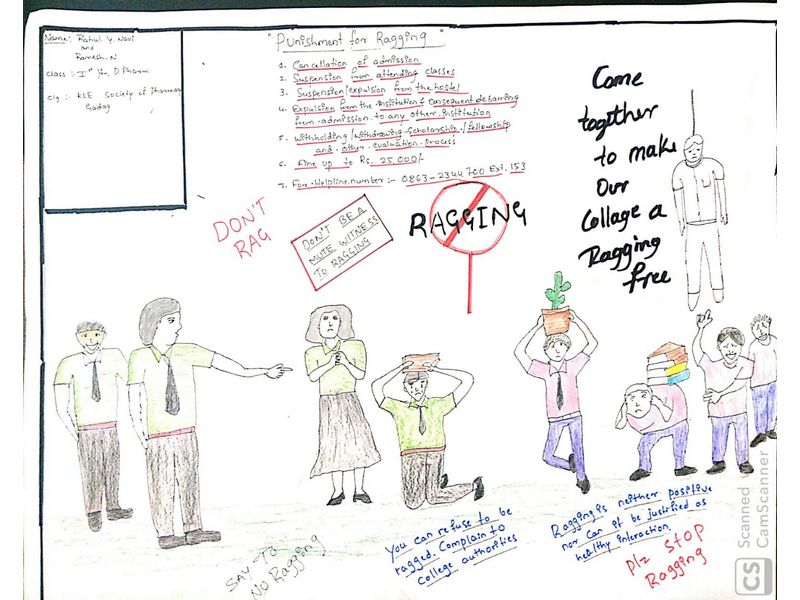 Name:- Rahul Y. Navi
and
Ramesh. N
Class :- Ist Yr. D Pharm
Clg :- KLE Society of Pharmacy
Gadag
"Punishment for Ragging"
1. Cancellation of admission
2. Suspension from attending classes
3. Suspension/expulsion from the hostel
4. Expulsion from the institution & consequent debarring
from admission to any other institution
5. Withholding/withdrawing scholarship/fellowship
and other evaluation process
6. Fine up to Rs. 25,000/-
7. For Helpline number :- 0863-2344700 Ext. 153
Come
together
to make
Our
Collage a
Ragging
free
DON'T
RAG
DON'T BE A
MUTE WITNESS
TO RAGGING
RAGGING
SAY TO
NO Ragging
You can refuse to be
ragged. Complain to
College authorities
Ragging is neither positive
nor can it be justified as
healthy interaction.
Plz STOP
Ragging
CS
Scanned
CamScanner